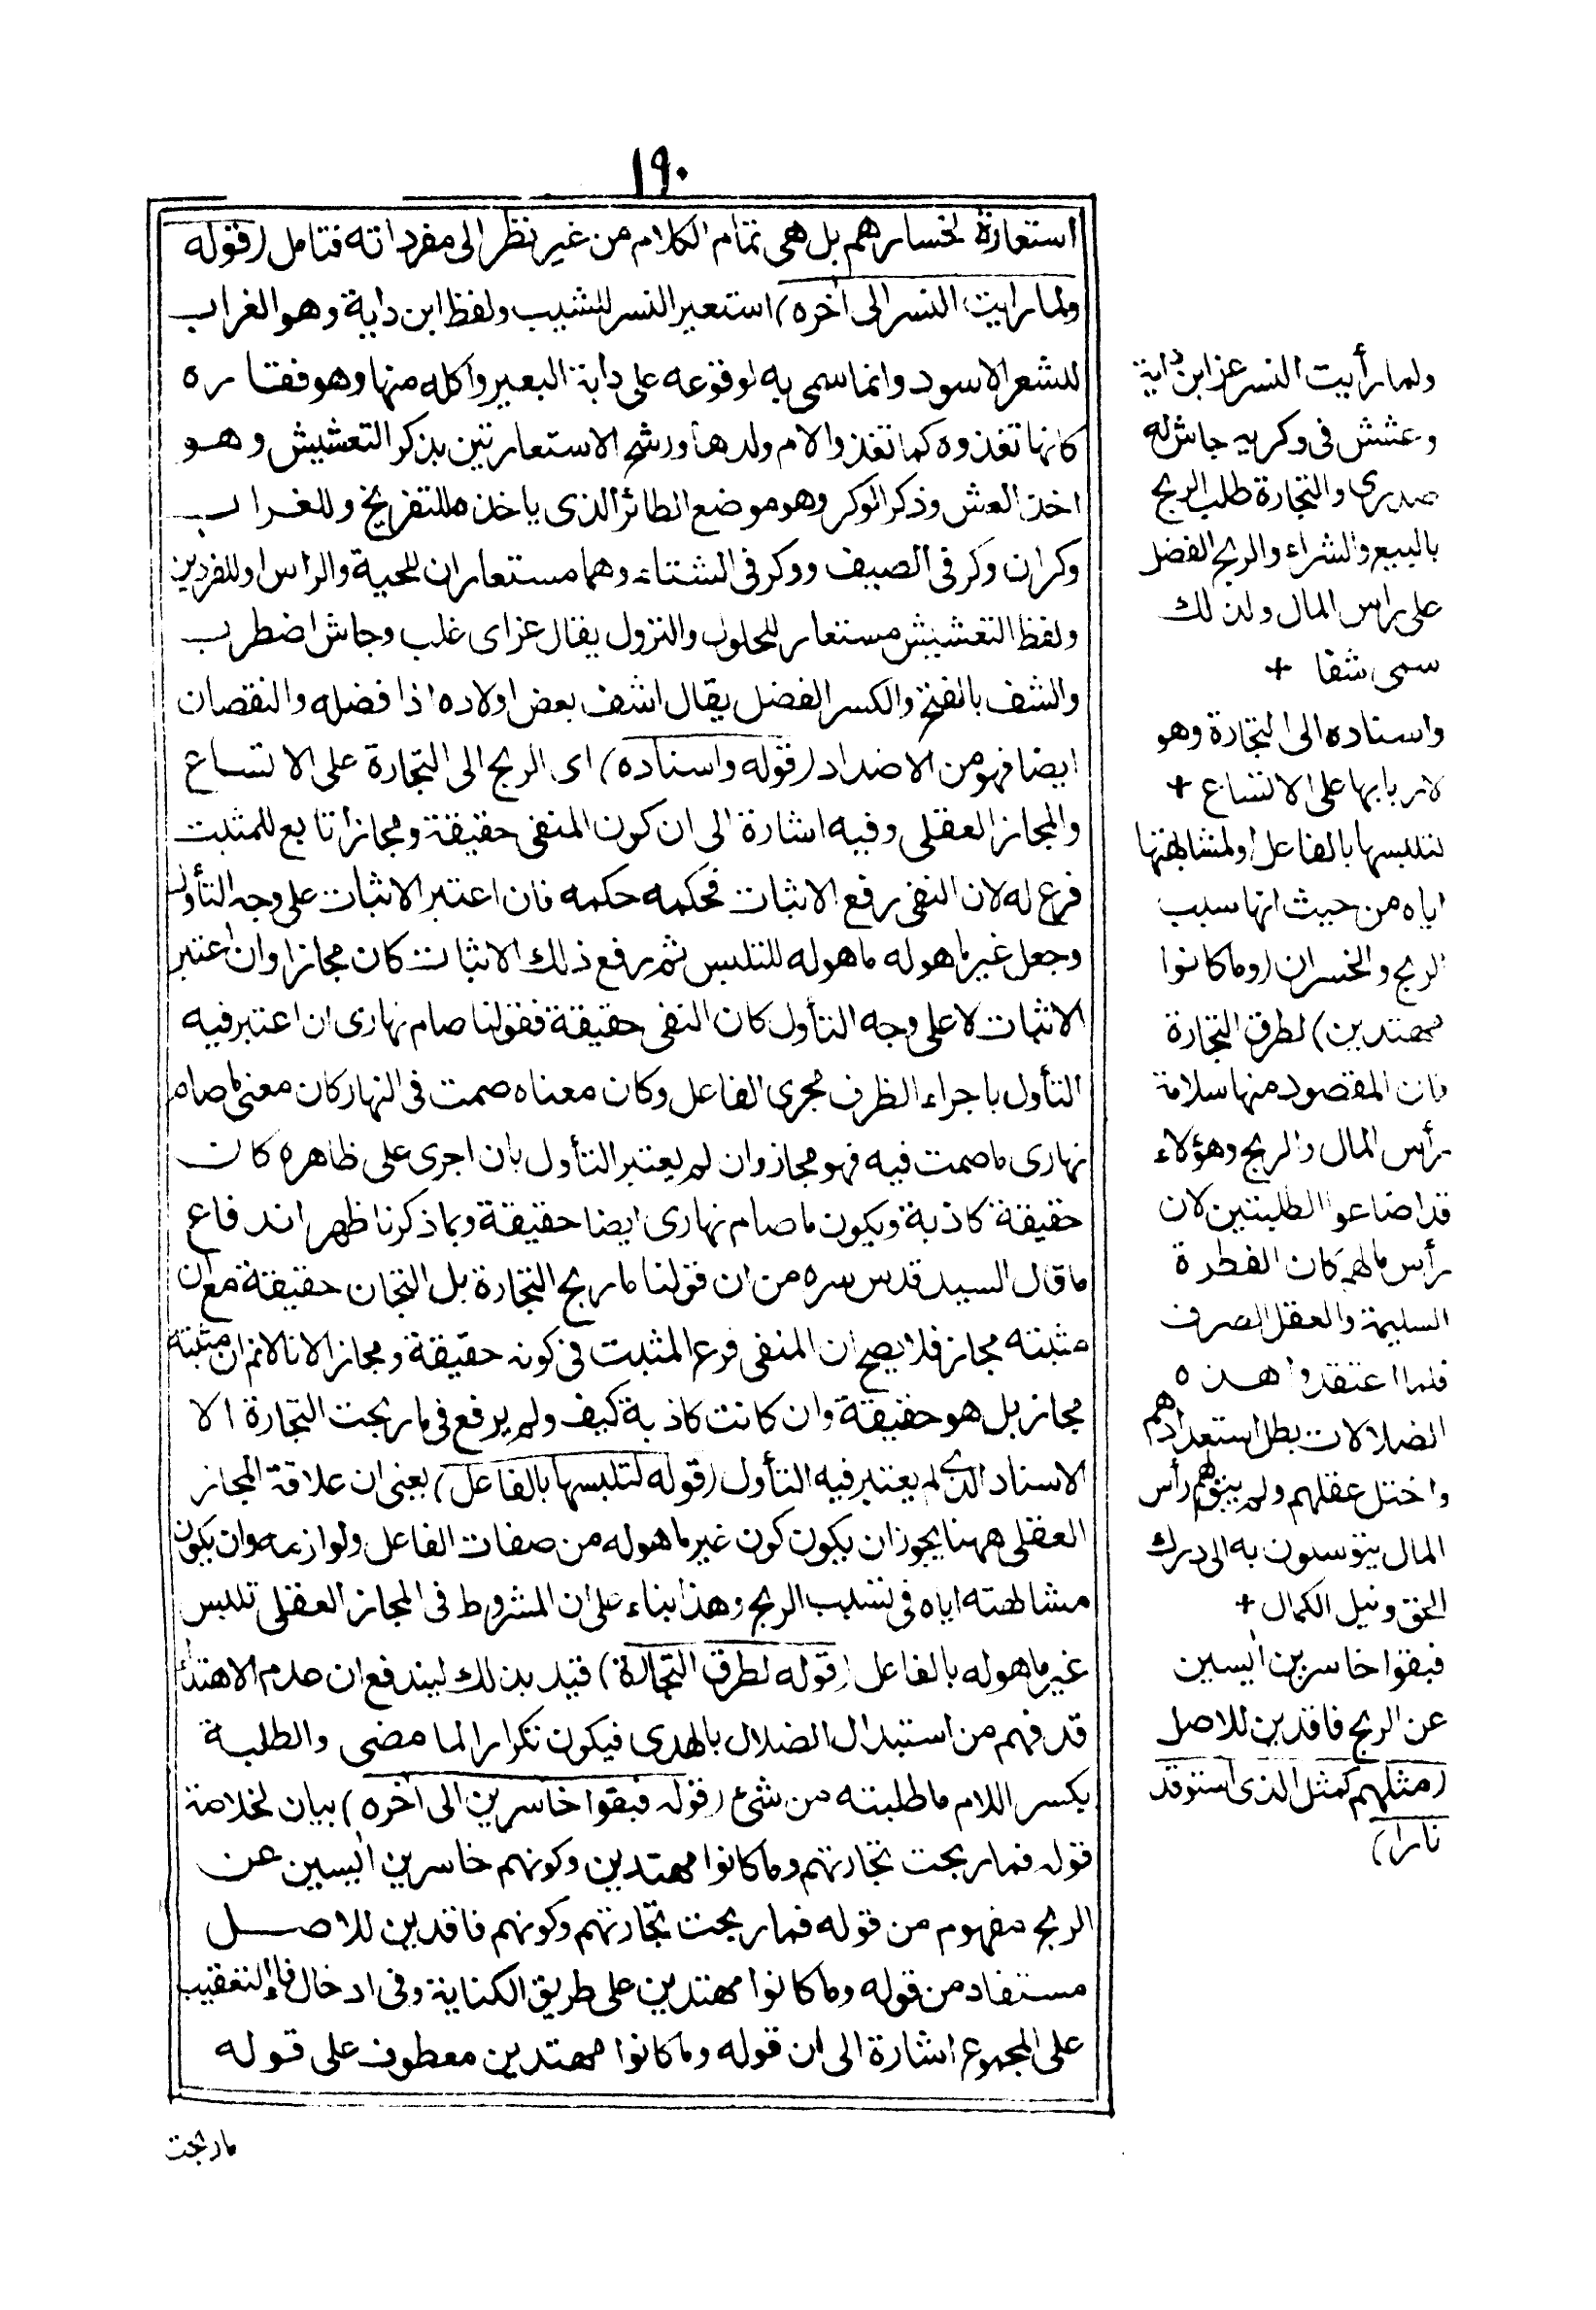 ١٩٠
استعارة لخسارهم بل هى تمام الكلام من غير نظر الى مفرداته فتامل (قوله
ولما رايت النسر الى اخره) استعير النسر للشيب ولفظ ابن داية وهو الغراب
للشعر الاسود وانما سمى به لوقوعه على داية البعير واكله منها وهو فقاره
كانها تغذوه كما تغذوا لام ولدها ورشح الاستعارتين بذكر التعشيش وهو
اخذ العش وذكر الوكر وهو موضع الطائر الذى ياخذه للتفريخ وللغراب
وكران وكر فى الصيف ووكر فى الشتاء وهما مستعاران للحية والراس او للفودين
ولفظ التعشيش مستعار للحلول والنزول يقال عز اى غلب وجاش اضطرب
والشف بالفتح والكسر الفضل يقال اشف بعض اولاده اذا فضله والنقصان
ايضا فهو من الاضداد (قوله واسناده) اى الربح الى التجارة على الاتساع
والمجاز العقلى وفيه اشارة الى ان كون المنفى حقيقة ومجازا تابع للمثبت
فرع له لان النفى رفع الاثبات فحكمه حكمه فان اعتبر الاثبات على وجه التأول
وجعل غير ما هوله ما هوله للتلبس ثم رفع ذلك الاثبات كان مجازا وان اعتبر
الاثبات لا على وجه التأول كان النفى حقيقة فقولنا صام نهارى ان اعتبر فيه
التأول باجراء الظرف مجرى الفاعل وكان معناه صمت فى النهار كان معنى ما صام
نهارى ما صمت فيه فهو مجاز وان لم يعتبر التأول بان اجرى على ظاهره كان
حقيقة كاذبة ويكون ما صام نهارى ايضا حقيقة وبما ذكرنا ظهر اندفاع
ما قال السيد قدس سره من ان قولنا ما ربح التجارة بل التجار حقيقة مع ان
مثبته مجاز فلا يصح ان المنفى فرع المثبت فى كونه حقيقة ومجازا لانا لا نم ان مثبته
مجاز بل هو حقيقة وان كانت كاذبة كيف ولم يرفع فى ما ربحت التجارة الا
الاسناد الذى لم يعتبر فيه التأول (قوله لتلبسها بالفاعل) يعنى ان علاقة المجاز
العقلى ههنا يجوز ان يكون كون غير ما هوله من صفات الفاعل ولوازمه وان يكون
مشابهته اياه فى تسبيب الربح وهذا بناء على ان المشروط فى المجاز العقلى تلبس
غير ما هوله بالفاعل (قوله لطرق التجارة) قيد بذلك ليندفع ان عدم الاهتداء
قد فهم من استبدال الضلال بالهدى فيكون تكرارا لما مضى والطلبة
بكسر اللام ما طلبته من شئ (قوله فبقوا خاسرين الى اخره) بيان لخلاصة
قوله فما ربحت تجارتهم وما كانوا مهتدين وكونهم خاسرين ائسين عن
الربح مفهوم من قوله فما ربحت تجارتهم وكونهم فاقدين للاصل
مستفاد من قوله وما كانوا مهتدين على طريق الكناية وفى ادخال فاء التعقيب
على المجموع اشارة الى ان قوله وما كانوا مهتدين معطوف على قوله
ما ربحت
ولما رأيت النسر عز ابن داية
وعشش فى وكريه جاش له
صدرى والتجارة طلب الربح
بالبيع والشراء والربح الفضل
على راس المال ولذلك
سمى شفا +
واسناده الى التجارة وهو
لاربابها على الاتساع +
لتلبسها بالفاعل او لمشابهتها
اياه من حيث انها سبب
الربح والخسران (وما كانوا
مهتدين) لطرق التجارة
فان المقصود منها سلامة
رأس المال والربح وهؤلاء
قد اضاعوا الطلبتين لان
رأس مالهم كان الفطرة
السليمة والعقل الصرف
فلما اعتقدوا هذه
الضلالات بطل استعدادهم
واختل عقلهم ولم يبق لهم رأس
المال يتوسلون به الى درك
الحق ونيل الكمال +
فبقوا خاسرين ائسين
عن الربح فاقدين للاصل
(مثلهم كمثل الذى استوقد
نارا)